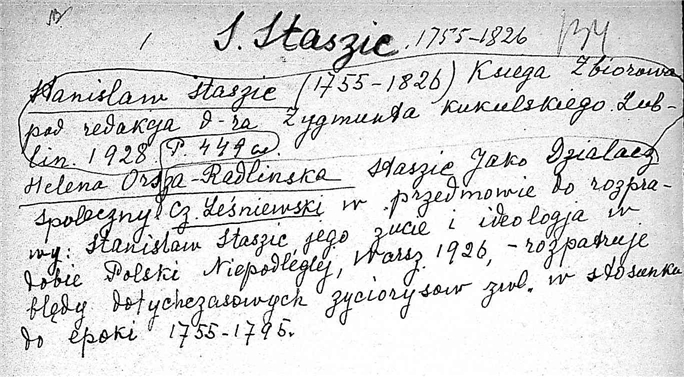 S. Staszic. 1755-1826
Stanislaw Staszic (1755-1826) Ksiega Zbiorowa
pod redakcja d-ra Zygmunta Kukulskiego. Lub-
lin. 1928. P. 449
Helena Orsza-Radlinska Staszic Jako Dzialacz
Spoleczny. Cz. Leśniewski w przedmowie do rozpra-
wy: Stanislaw Staszic jego zycie i ideologja w
dobie Polski Niepodleglej, Warsz. 1926, - rozpatruje
blędy dotychczasowych zyciorysow zwl. w stosunku
do epoki 1755-1795.